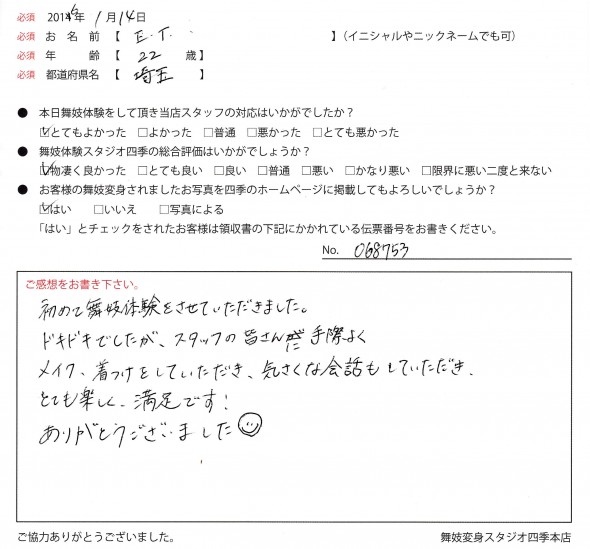 必須 2016年 1月14日
必須 お 名 前 【 E.T. 】（イニシャルやニックネームでも可）
必須 年 齢 【 22 歳】
必須 都道府県名 【 埼玉 】
● 本日舞妓体験をして頂き当店スタッフの対応はいかがでしたか？
☑とてもよかった □よかった □普通 □悪かった □とても悪かった
● 舞妓体験スタジオ四季の総合評価はいかがでしょうか？
☑物凄く良かった □とても良い □良い □普通 □悪い □かなり悪い □限界に悪い二度と来ない
● お客様の舞妓変身されましたお写真を四季のホームページに掲載してもよろしいでしょうか？
☑はい □いいえ □写真による
「はい」とチェックをされたお客様は領収書の下記にかかれている伝票番号をお書きください。
No. 068753
ご感想をお書き下さい。
初めて舞妓体験をさせていただきました。
ドキドキでしたが、スタッフの皆さんに手際よく
メイク、着つけをしていただき、気さくな会話もしていただき、
とても楽しく、満足です！
ありがとうございました
ご協力ありがとうございました。 舞妓変身スタジオ四季本店